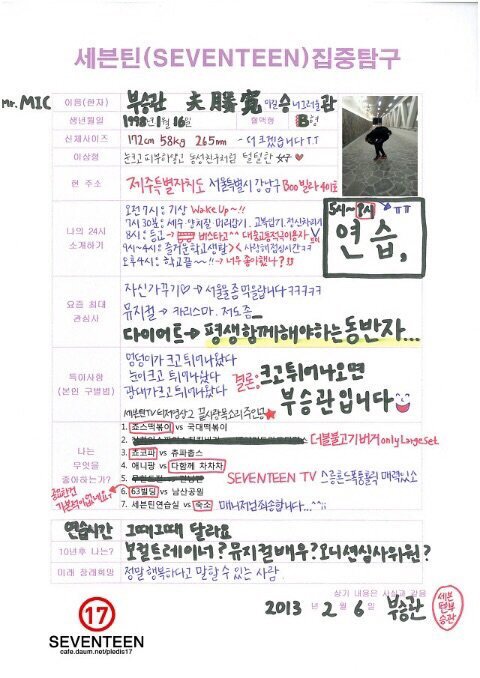 세븐틴(SEVENTEEN)집중탐구
Mr. MIC
이름(한자) 부승관 夫勝寬 이길 승 너그러울 관
생년월일 1998년 1월 16일 혈액형 B형
신체사이즈 172cm 58kg 265mm - 더 크겠습니다 T.T
이상형 눈크고 피부하얗고 동성친구처럼 털털한 女子 ♥
현 주소 제주특별자치도 서울특별시 강남구 Boo빌라 401호
나의 24시 소개하기
오전 7시: 기상 Wake Up~!!
7시 30분: 세수·양치질·머리감기·교복입기·정신차리기
8시: 등교 → 버스타고^^ 대중교통적극이용자
9시~4시: 즐거운학교생활 > <
오후4시: 학교끝~!!
5시~ 연습,
요즘 최대 관심사
자신가꾸기♡→ 서울물 좀 먹을랍니다 ㅋㅋㅋㅋㅋ
뮤지컬→ 카리스마. 저도 좀
다이어트→ 평생함께해야하는동반자...
특이사항 (본인 구별법)
엉덩이가 크고 튀어나왔다
눈이 크고 튀어나왔다
광대가 크고 튀어나왔다
결론: 크고 튀어나오면 부승관입니다
나는 무엇을 좋아하는가?
1. 죠스떡볶이 vs 국대떡볶이
2. 더블불고기버거 only Large Set
3. 쵸코파 vs 츄파춥스
4. 애니팡 vs 다함께 차차차
5.
SEVENTEEN TV
6. 63빌딩 vs 남산공원
7. 세븐틴연습실 vs 숙소 매니저님죄송합니다...^^;;
연습시간 그때그때 달라요
10년후 나는? 보컬트레이너? 뮤지컬배우? 오디션심사위원?
미래 장래희망 정말 행복하다고 말할 수 있는 사람.
상기 내용은 사실과 같음
2013 년 2 월 6 일 부승관
세븐틴부승관
17
SEVENTEEN
cafe.daum.net/pledis17